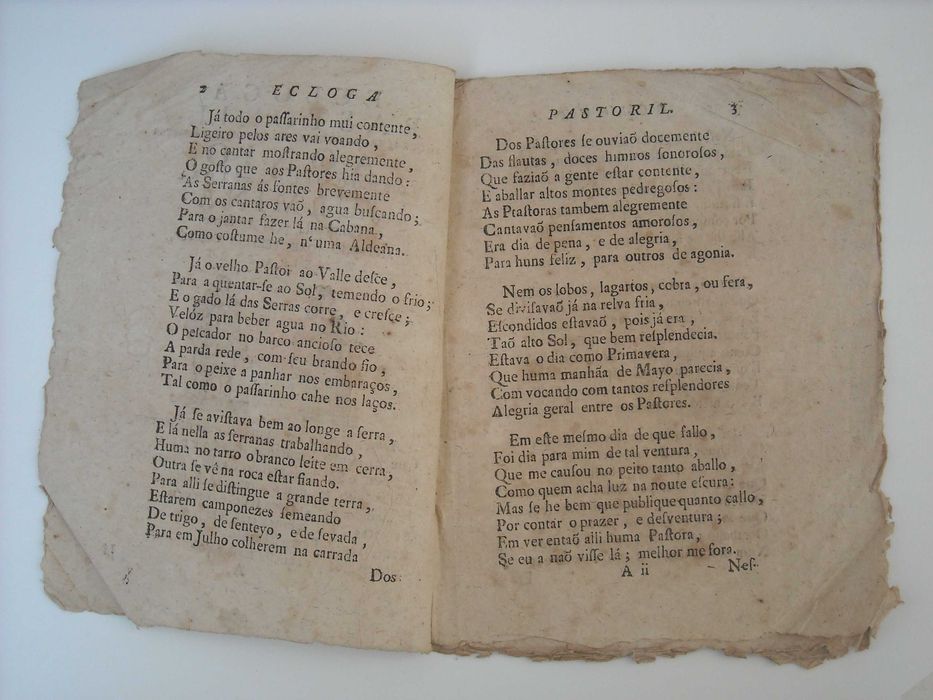 2 ECLOGA
Já todo o paſſarinho mui contente,
Ligeiro pelos ares vai voando,
E no cantar moſtrando alegremente,
O goſto que aos Paſtores hia dando:
As Serranas ás fontes brevemente
Com os cantaros vaõ, agua buſcando;
Para o jantar fazer lá na Cabana,
Como coſtume he, n'uma Aldeana.
Já o velho Paſtor ao Valle deſce,
Para a quentar-ſe ao Sol, temendo o frio;
E o gado lá das Serras corre, e creſce;
Velóz para beber agua no Rio:
O peſcador no barco ancioſo tece
A parda rede, com ſeu brando fio,
Para o peixe a panhar nos embaraços,
Tal como o paſſarinho cahe nos laços.
Já ſe aviſtava bem ao longe a ſerra,
E lá nella as ſerranas trabalhando,
Huma no tarro o branco leite em cerra,
Outra ſe vê na roca eſtar fiando.
Para alli ſe diſtingue a grande terra,
Eſtarem camponezes ſemeando
De trigo, de ſenteyo, e de ſevada,
Para em Julho colherem na carrada
Dos
PASTORIL. 3
Dos Paſtores ſe ouviaõ docemente
Das flautas, doces himnos ſonoroſos,
Que faziaõ a gente eſtar contente,
E aballar altos montes pedregoſos:
As Ptaſtoras tambem alegremente
Cantavaõ penſamentos amoroſos,
Era dia de pena, e de alegria,
Para huns feliz, para outros de agonia.
Nem os lobos, lagartos, cobra, ou fera,
Se diviſavaõ já na relva fria,
Eſcondidos eſtavaõ, pois já era,
Taõ alto Sol, que bem reſplendecia.
Eſtava o dia como Primavera,
Que huma manhãa de Mayo parecia,
Com vocando com tantos reſplendores
Alegria geral entre os Paſtores.
Em eſte meſmo dia de que fallo,
Foi dia para mim de tal ventura,
Que me cauſou no peito tanto aballo,
Como quem acha luz na noute eſcura:
Mas ſe he bem que publique quanto callo,
Por contar o prazer, e deſventura;
Em ver entaõ alli huma Paſtora,
Se eu a naõ viſſe lá; melhor me fora.
A ii Neſ-